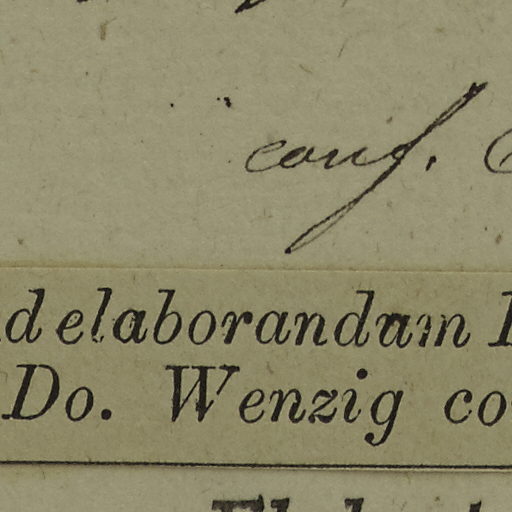 conf.
elaborandum
Do. Wenzig